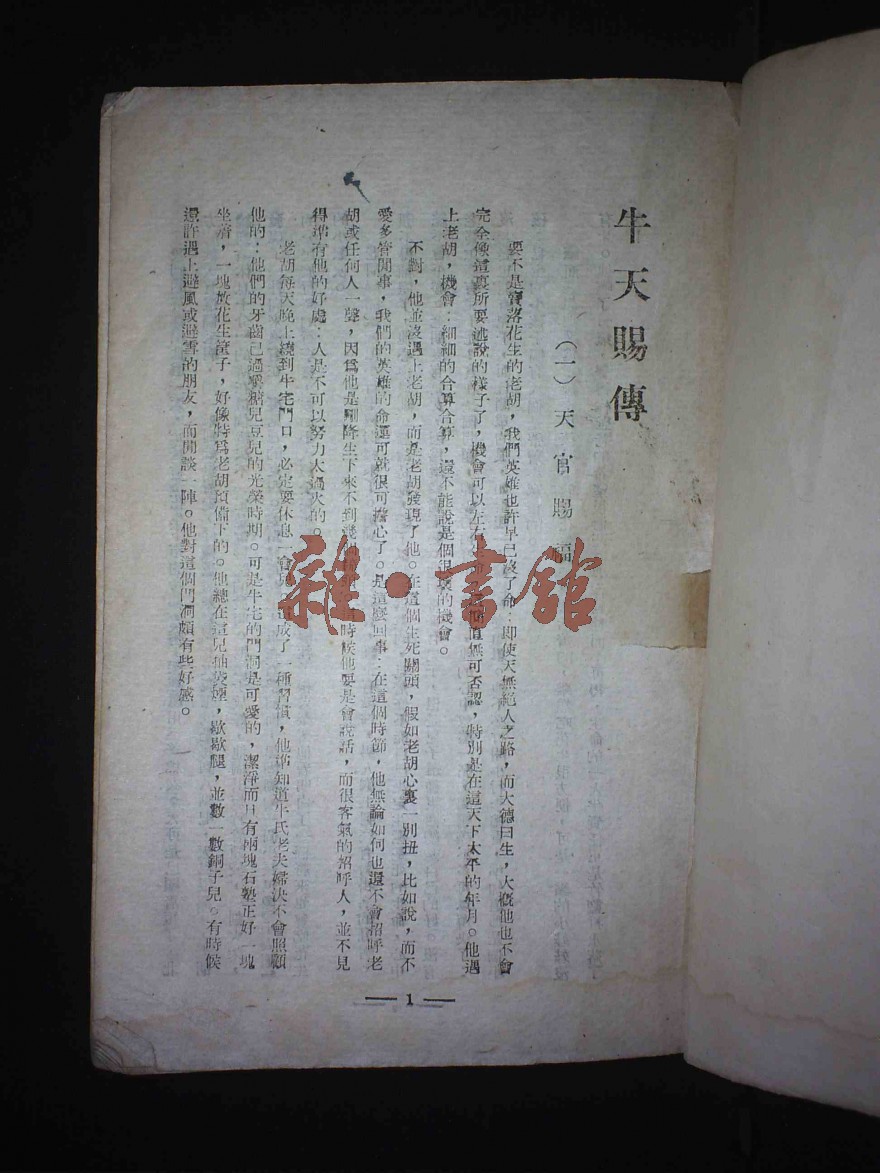 牛天賜傳
（一）天官賜福
要不是賣落花生的老胡，我們英雄也許早已沒了命：即使天無絕人之路，而大德曰生，大概他也不會
完全像這裏所要述說的樣子了，機會可以左右 無可否認，特別是在這天下太平的年月。他遇
上老胡，機會：細細的合算合算，還不能說是個很壞的機會。
不對，他並沒遇上老胡，而是老胡發現了他。在這個生死關頭，假如老胡心裏一別扭，比如說，而不
愛多管閒事，我們的英雄的命運可就很可擔心了。是這麼回事：在這個時節，他無論如何也還不會招呼老
胡或任何人一聲，因爲他是剛降生下來不到 時候他要是會說話，而很客氣的招呼人，並不見
得準有他的好處：人是不可以努力太過火的。
老胡每天晚上繞到牛宅門口，必定要休息一會兒 成了一種習慣，他準知道牛氏老夫婦決不會照顧
他的：他們的牙齒已過 糖兒豆兒的光榮時期。可是牛宅的門洞是可愛的，潔淨而且有兩塊石墊正好一塊
坐着，一塊放花生筐子，好像特爲老胡預備下的。他總在這兒抽袋煙，歇歇腿，並數一數銅子兒。有時候
還許遇上避風或避雪的朋友，而閒談一陣。他對這個門洞頗有些好感。
— 1 —
雜·書館